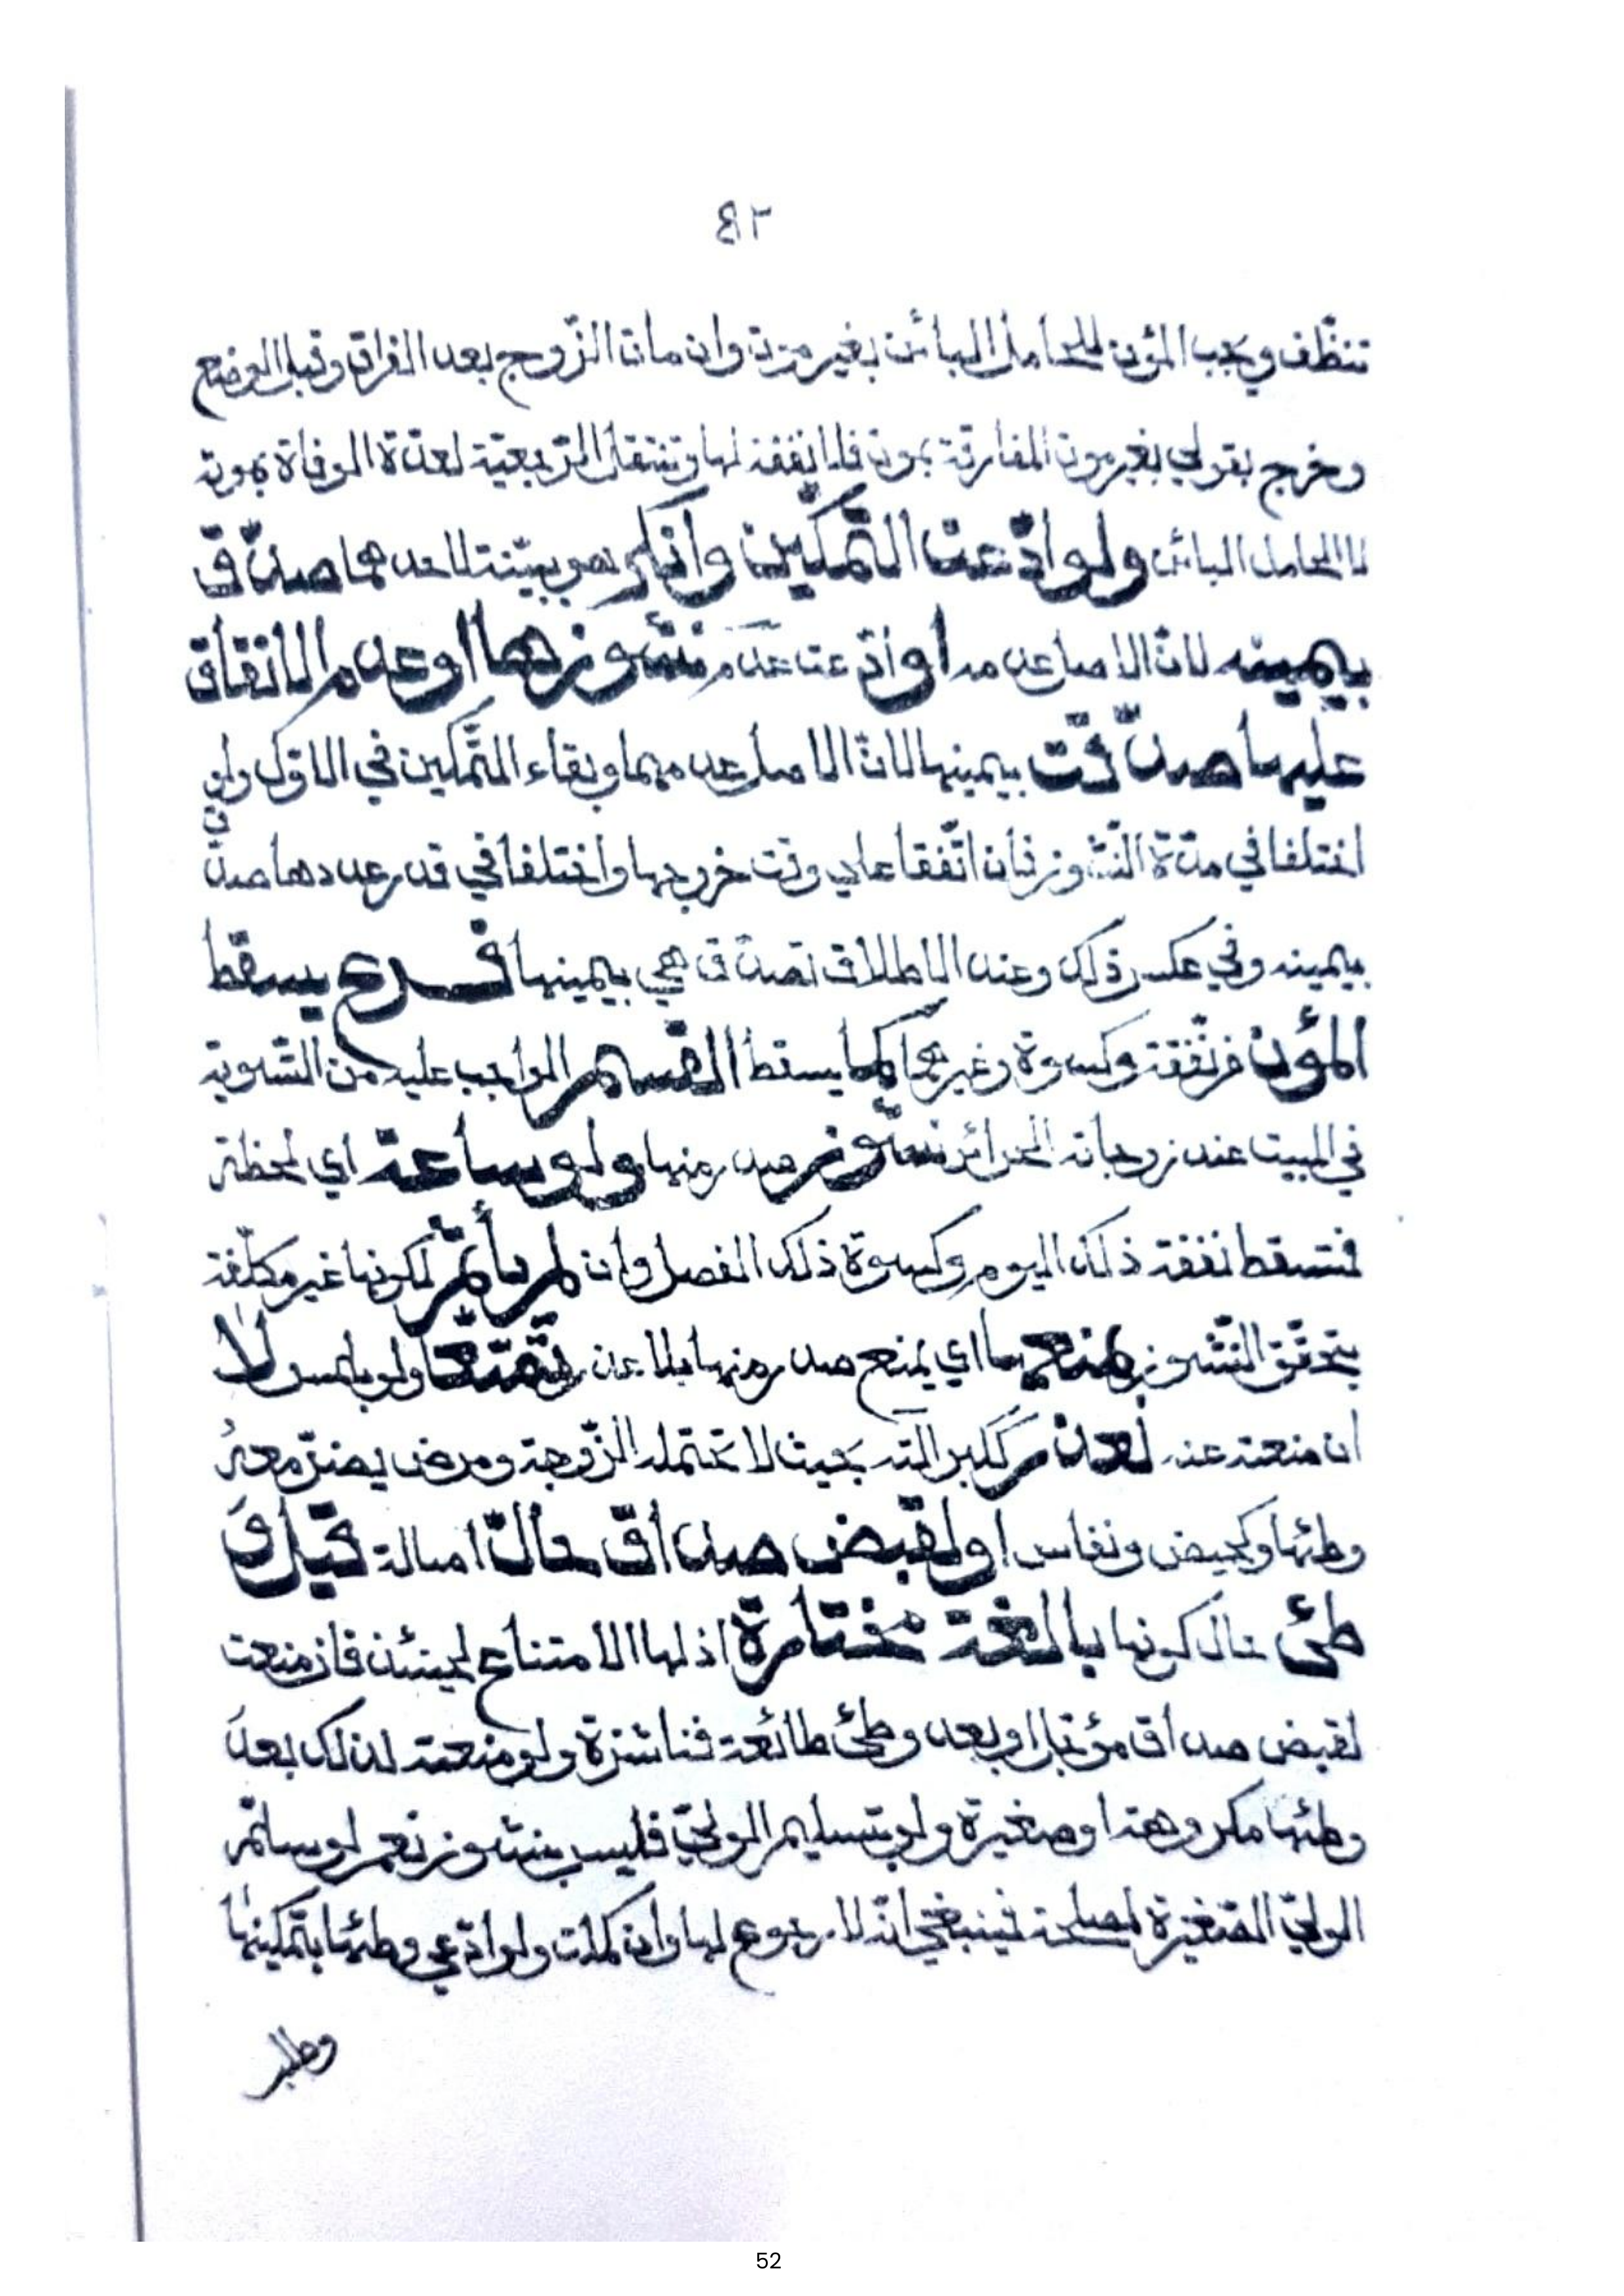 ٤٢
تنظّف ويجب المؤن للحامل البائن بغير موت وان مات الزّوج بعد الفراق وقبل الوضع
وخرج بقولي بغير موت المفارقة بموت فلا نفقة لها وتنتقل الرّجعيّة لعدّة الوفاة بموته
لا الحامل البائن ولو ادّعت التّمكين وانكر هو بيّنة لاحدهما صدّق
بيمينه لانّ الاصل عدمه او ادّعت عدم نشوزها او عدم الانفاق
عليها صدّقت بيمينها لانّ الاصل عدمهما وبقاء التّمكين في الاوّل ولو
اختلفا في مدّة النّشوز فان اتّفقا على وقت خروجها واختلفا في قدر عددها صدّق
بيمينه وفي عكس ذلك وعند الاطلاق تصدّق هي بيمينها فرع يسقط
المؤن من نفقة وكسوة وغيرهما كما يسقط القسم الواجب عليه من التّسوية
في المبيت عند زوجاته الحرائر نشوز صدر منها ولو ساعة اي لحظة
فتسقط نفقة ذلك اليوم وكسوة ذلك الفصل وان لم يأثم لكونها غير مكلّفة
يتحقّق النّشوز بمنعها اي يمنع صدر منها بلا عذر تمتّعا ولو بلمس لا
ان منعته عنه لعذر ككبر آلته بحيث لا تحتمله الزّوجة ومرض يضرّ معه
وطئها وكحيض ونفاس او لقبض صداق حالّ اصالة قبل و
طئ حال كونها بالغة مختارة اذ لها الامتناع لحينئذ فان منعت
لقبض صداق مؤجّل او بعد وطئ طائعة فناشزة ولو منعته لذلك بعد
وطئها مكروهة او صغيرة ولو بتسليم الوليّ فليس بنشوز نعم لو سلّم
الوليّ الصّغيرة لمصلحة فينبغي انّه لا رجوع لها وان كملت ولو ادّعى وطئها بتمكينها
وطلب
52